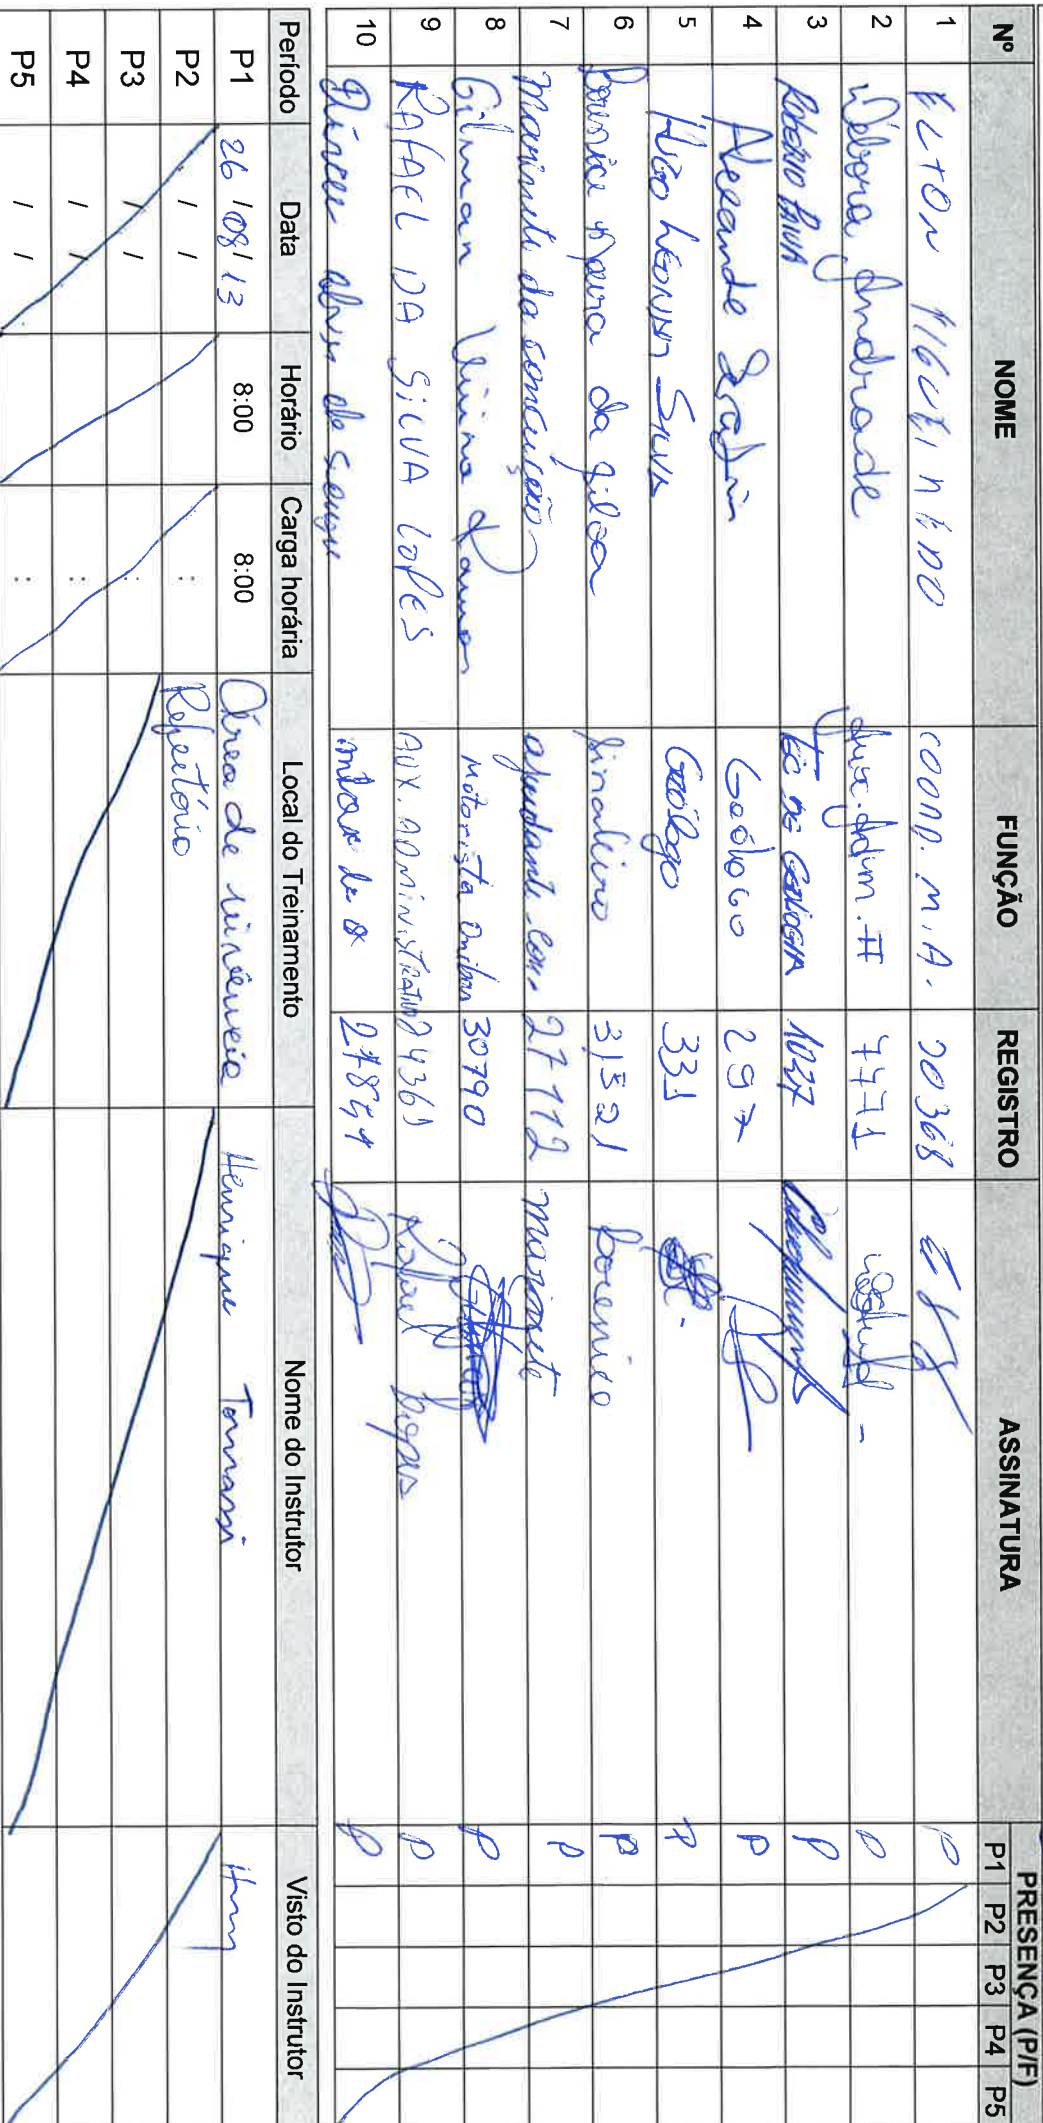 Nº NOME FUNÇÃO REGISTRO ASSINATURA PRESENÇA (P/F)
P1 P2 P3 P4 P5
1 ELTON FIGUEIREDO COORD. M.A. 20368 P
2 Débora Andrade Aux. Adm. II 7771 P
3 Robério Paiva TÉC DE GEOLOGIA 1027 P
4 Alexandre Serafim Geólogo 297 P
5 Hugo Leonir Silva Geólogo 331 P
6 Berenice Maura da Silva Sinaleiro 31521 Berenice P
7 Marinete da Conceição ajudante com. 27112 Marinete P
8 Gilman Ramos Motorista Onibus 30790 P
9 RAFAEL DA SILVA LOPES AUX. ADMINISTRATIVO 24361 Rafael Lopes P
10 de P
Período Data Horário Carga horária Local do Treinamento Nome do Instrutor Visto do Instrutor
P1 26/08/13 8:00 8:00 Área de vivência Henrique Tomassi
P2 / / : Refeitório
P3 / / :
P4 / / :
P5 / / :